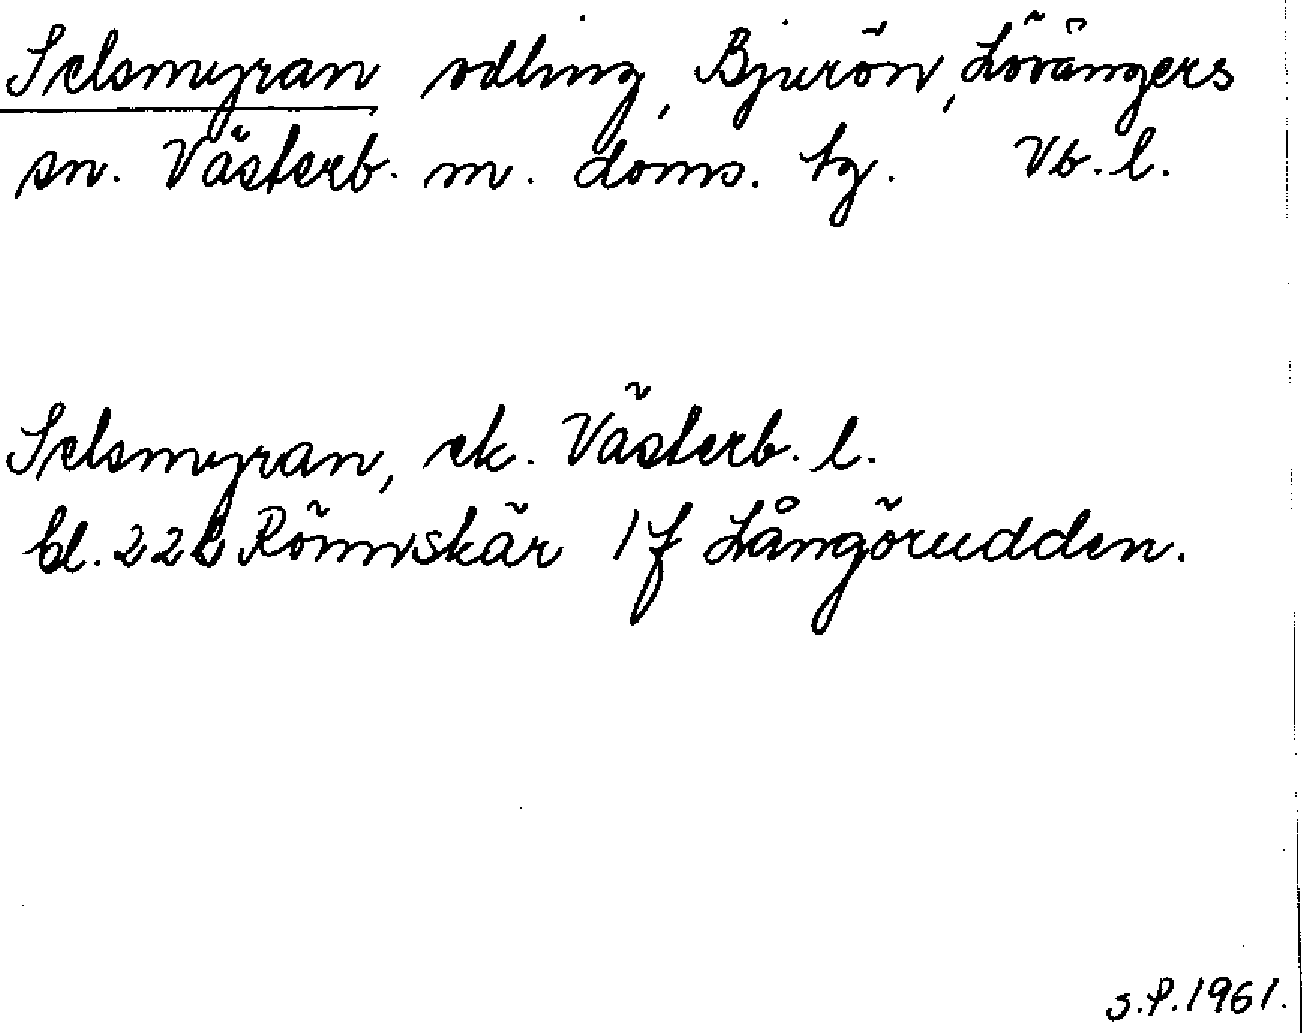 Selsmyran odling, Bjurön, Lövångers
sn. Västerb. m. doms. tg. Vb. l.
Selsmyran, ek. Västerb. l.
bl. 22L Rönnskär 1f Långörudden.
S.P. 1961.